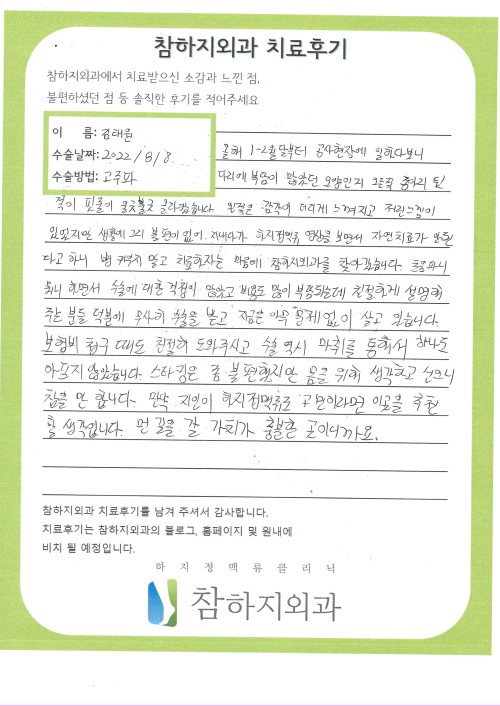 참하지외과 치료후기
참하지외과에서 치료받으신 소감과 느낀 점,
불편하셨던 점 등 솔직한 후기를 적어주세요
이 름: 김태원
수술날짜: 2022/8/8
수술방법: 고주파
올해 1-2월달부터 공사현장에 일하다보니
다리에 부음이 많았던 모양인지 오른쪽 종아리 뒷
쪽이 핏줄이 울긋불긋 올라왔습니다. 왼쪽은 감각이 더디게 느껴지고 저린느낌이
있었지만 생활에 그리 불편이 없어. 지내다가 하지정맥류 영상을 보면서 자연치료가 안된
다고 하니 병 키우지 않고 치료하자는 마음에 참하지외과를 찾아갔습니다. 초음파니
뭐니 하면서 수술에 대한 걱정이 많았고 비용도 많이 부족되는데 친절하게 설명해
주는 분들 덕분에 무사히 수술을 받고 지금은 아주 문제없이 살고 있습니다.
보험비 청구 때도 친절히 도와주시고 수술 역시 마취를 통해서 하나도
아프지 않았습니다. 스타킹은 좀 불편했지만 몸을 위해 생각하고 신으니
참을 만 합니다. 만약 지인이 하지정맥류로 고민이라면 이곳을 추천
할 생각입니다. 먼 길을 갈 가치가 충분한 곳이니까요.
참하지외과 치료후기를 남겨 주셔서 감사합니다.
치료후기는 참하지외과의 블로그, 홈페이지 및 원내에
비치 될 예정입니다.
하지정맥류클리닉
참하지외과